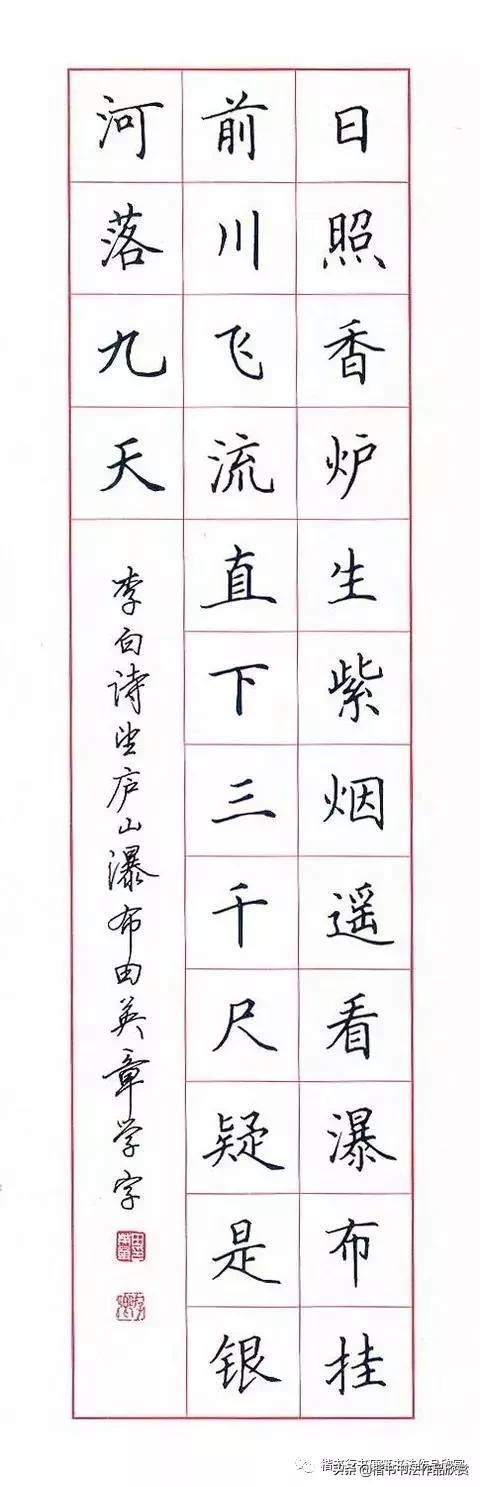 日照香炉生紫烟遥看瀑布挂
前川飞流直下三千尺疑是银
河落九天
李白诗望庐山瀑布田英章学字
头条@楷书书法作品欣赏